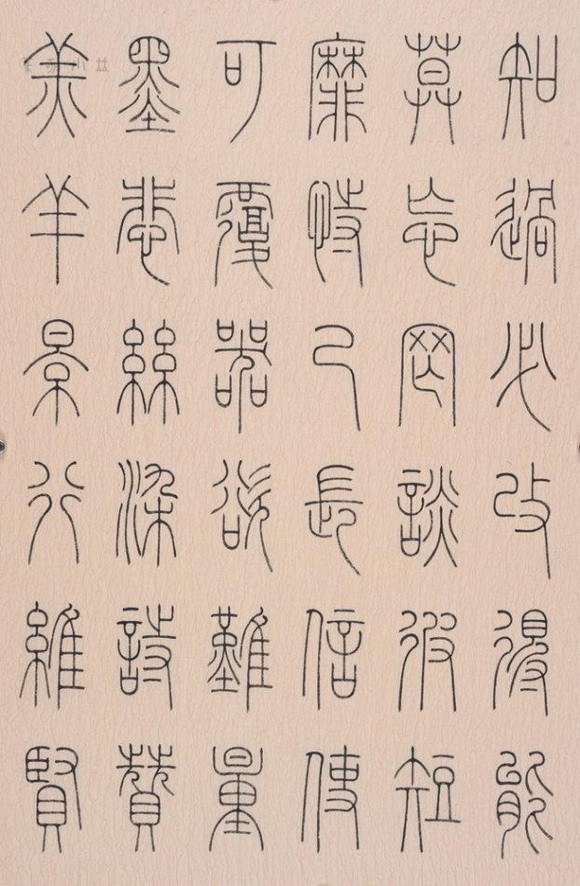 知過必改得能
莫忘罔談彼短
靡恃己長信使
可覆器欲難量
墨悲絲染詩贊
羔羊景行維賢